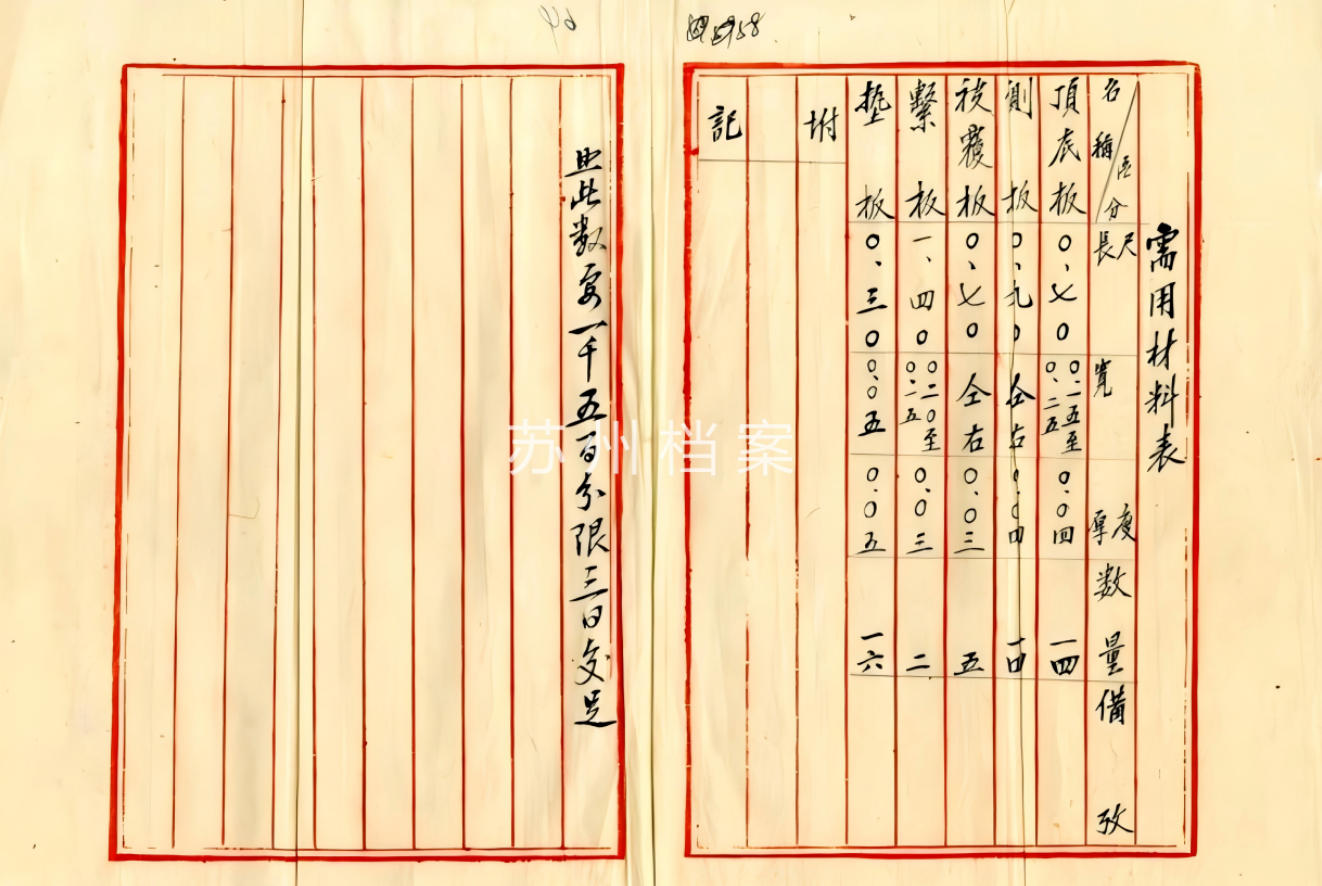 5958
需用材料表
名稱/區分 尺長 寬 厚度 数量 備攷
頂底板 〇、七〇 〇、一五至〇、二五 〇、〇四 一四
側板 〇、九〇 仝右 〇、〇四 一四
被覆板 〇、七〇 仝右 〇、〇三 五
繫板 一、四〇 〇、二〇至〇、二五 〇、〇三 二
墊板 〇、三〇 〇、〇五 〇、〇五 一六
坿記
照此数要一千五百分限三日交足
苏州档案